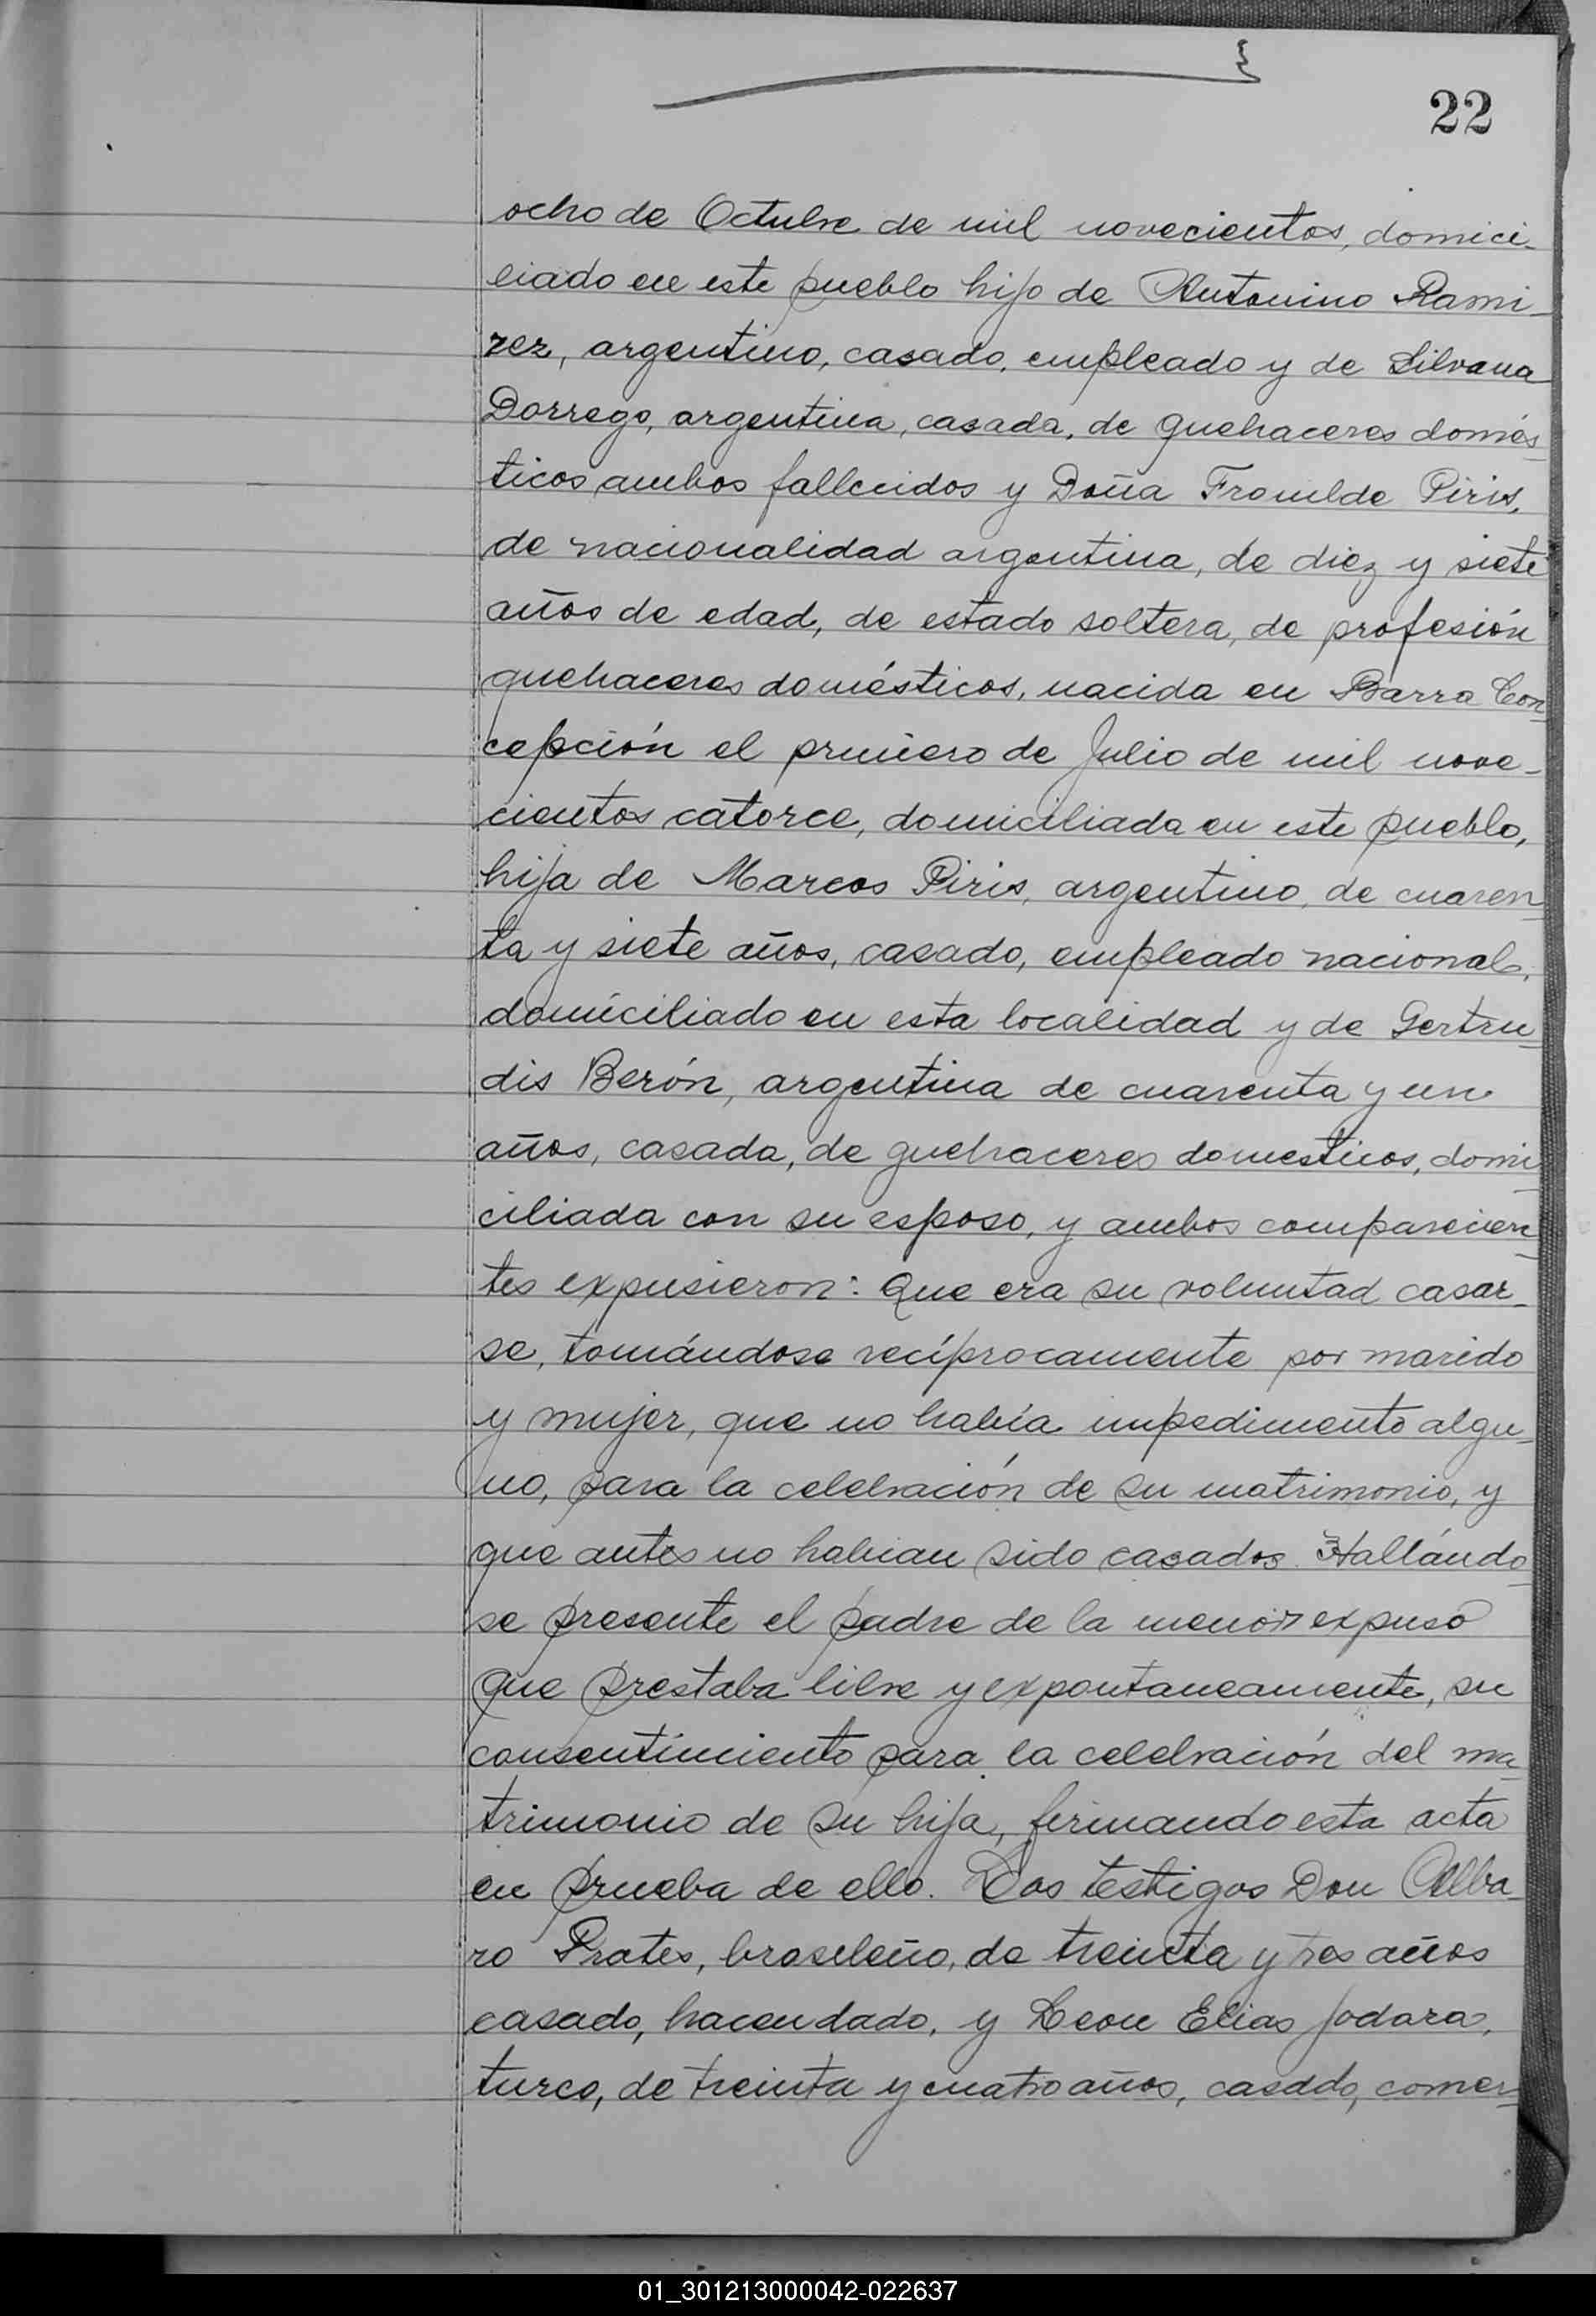 22
ocho de Octubre de mil novecientos, domici-
liado en este pueblo hijo de Antonino Rami-
rez, argentino, casado, empleado y de Silvana
Dorrego, argentina, casada, de quehaceres domés-
ticos ambos fallecidos y Doña Fromilde Piris,
de nacionalidad argentina, de diez y siete
años de edad, de estado soltera, de profesión
quehaceres domésticos, nacida en Barra Con-
cepción el primero de Julio de mil nove-
cientos catorce, domiciliada en este pueblo,
hija de Marcos Piris, argentino, de cuaren-
ta y siete años, casado, empleado nacional,
domiciliado en esta localidad y de Gertru-
dis Berón, argentina de cuarenta y un
años, casada, de quehaceres domesticos, domi-
ciliada con su esposo, y ambos comparecien-
tes expusieron: Que era su voluntad casar-
se, tomándose recíprocamente por marido
y mujer, que no había impedimento algu-
no, para la celebración de su matrimonio, y
que antes no habian sido casados. Hallándo-
se presente el padre de la menor expuso
que prestaba libre y expontaneamente, su
consentimiento para la celebración del ma-
trimonio de su hija, firmando esta acta
en prueba de ello. Los testigos Don Alba-
ro Prates, brasileño, de treinta y tres años
casado, hacendado, y Leon Elias Jodara,
turco, de treinta y cuatro años, casado, comer-
01_301213000042-022637